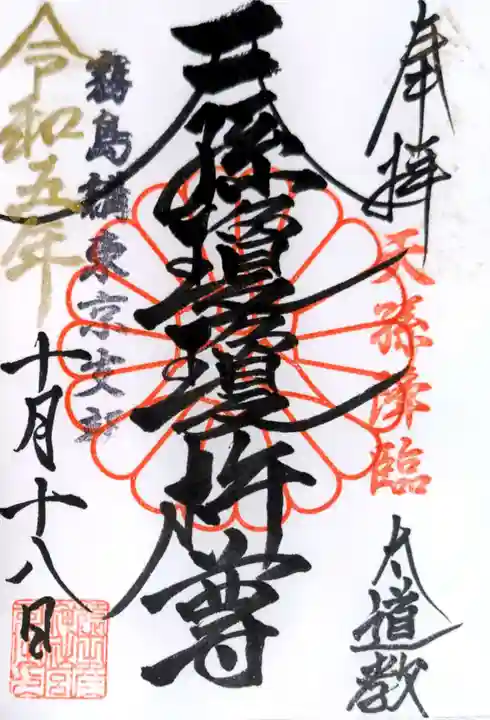 奉拝
天孫降臨
大道教
天孫瓊瓊杵尊
霧島 東京支部
令和五年
十月十八日